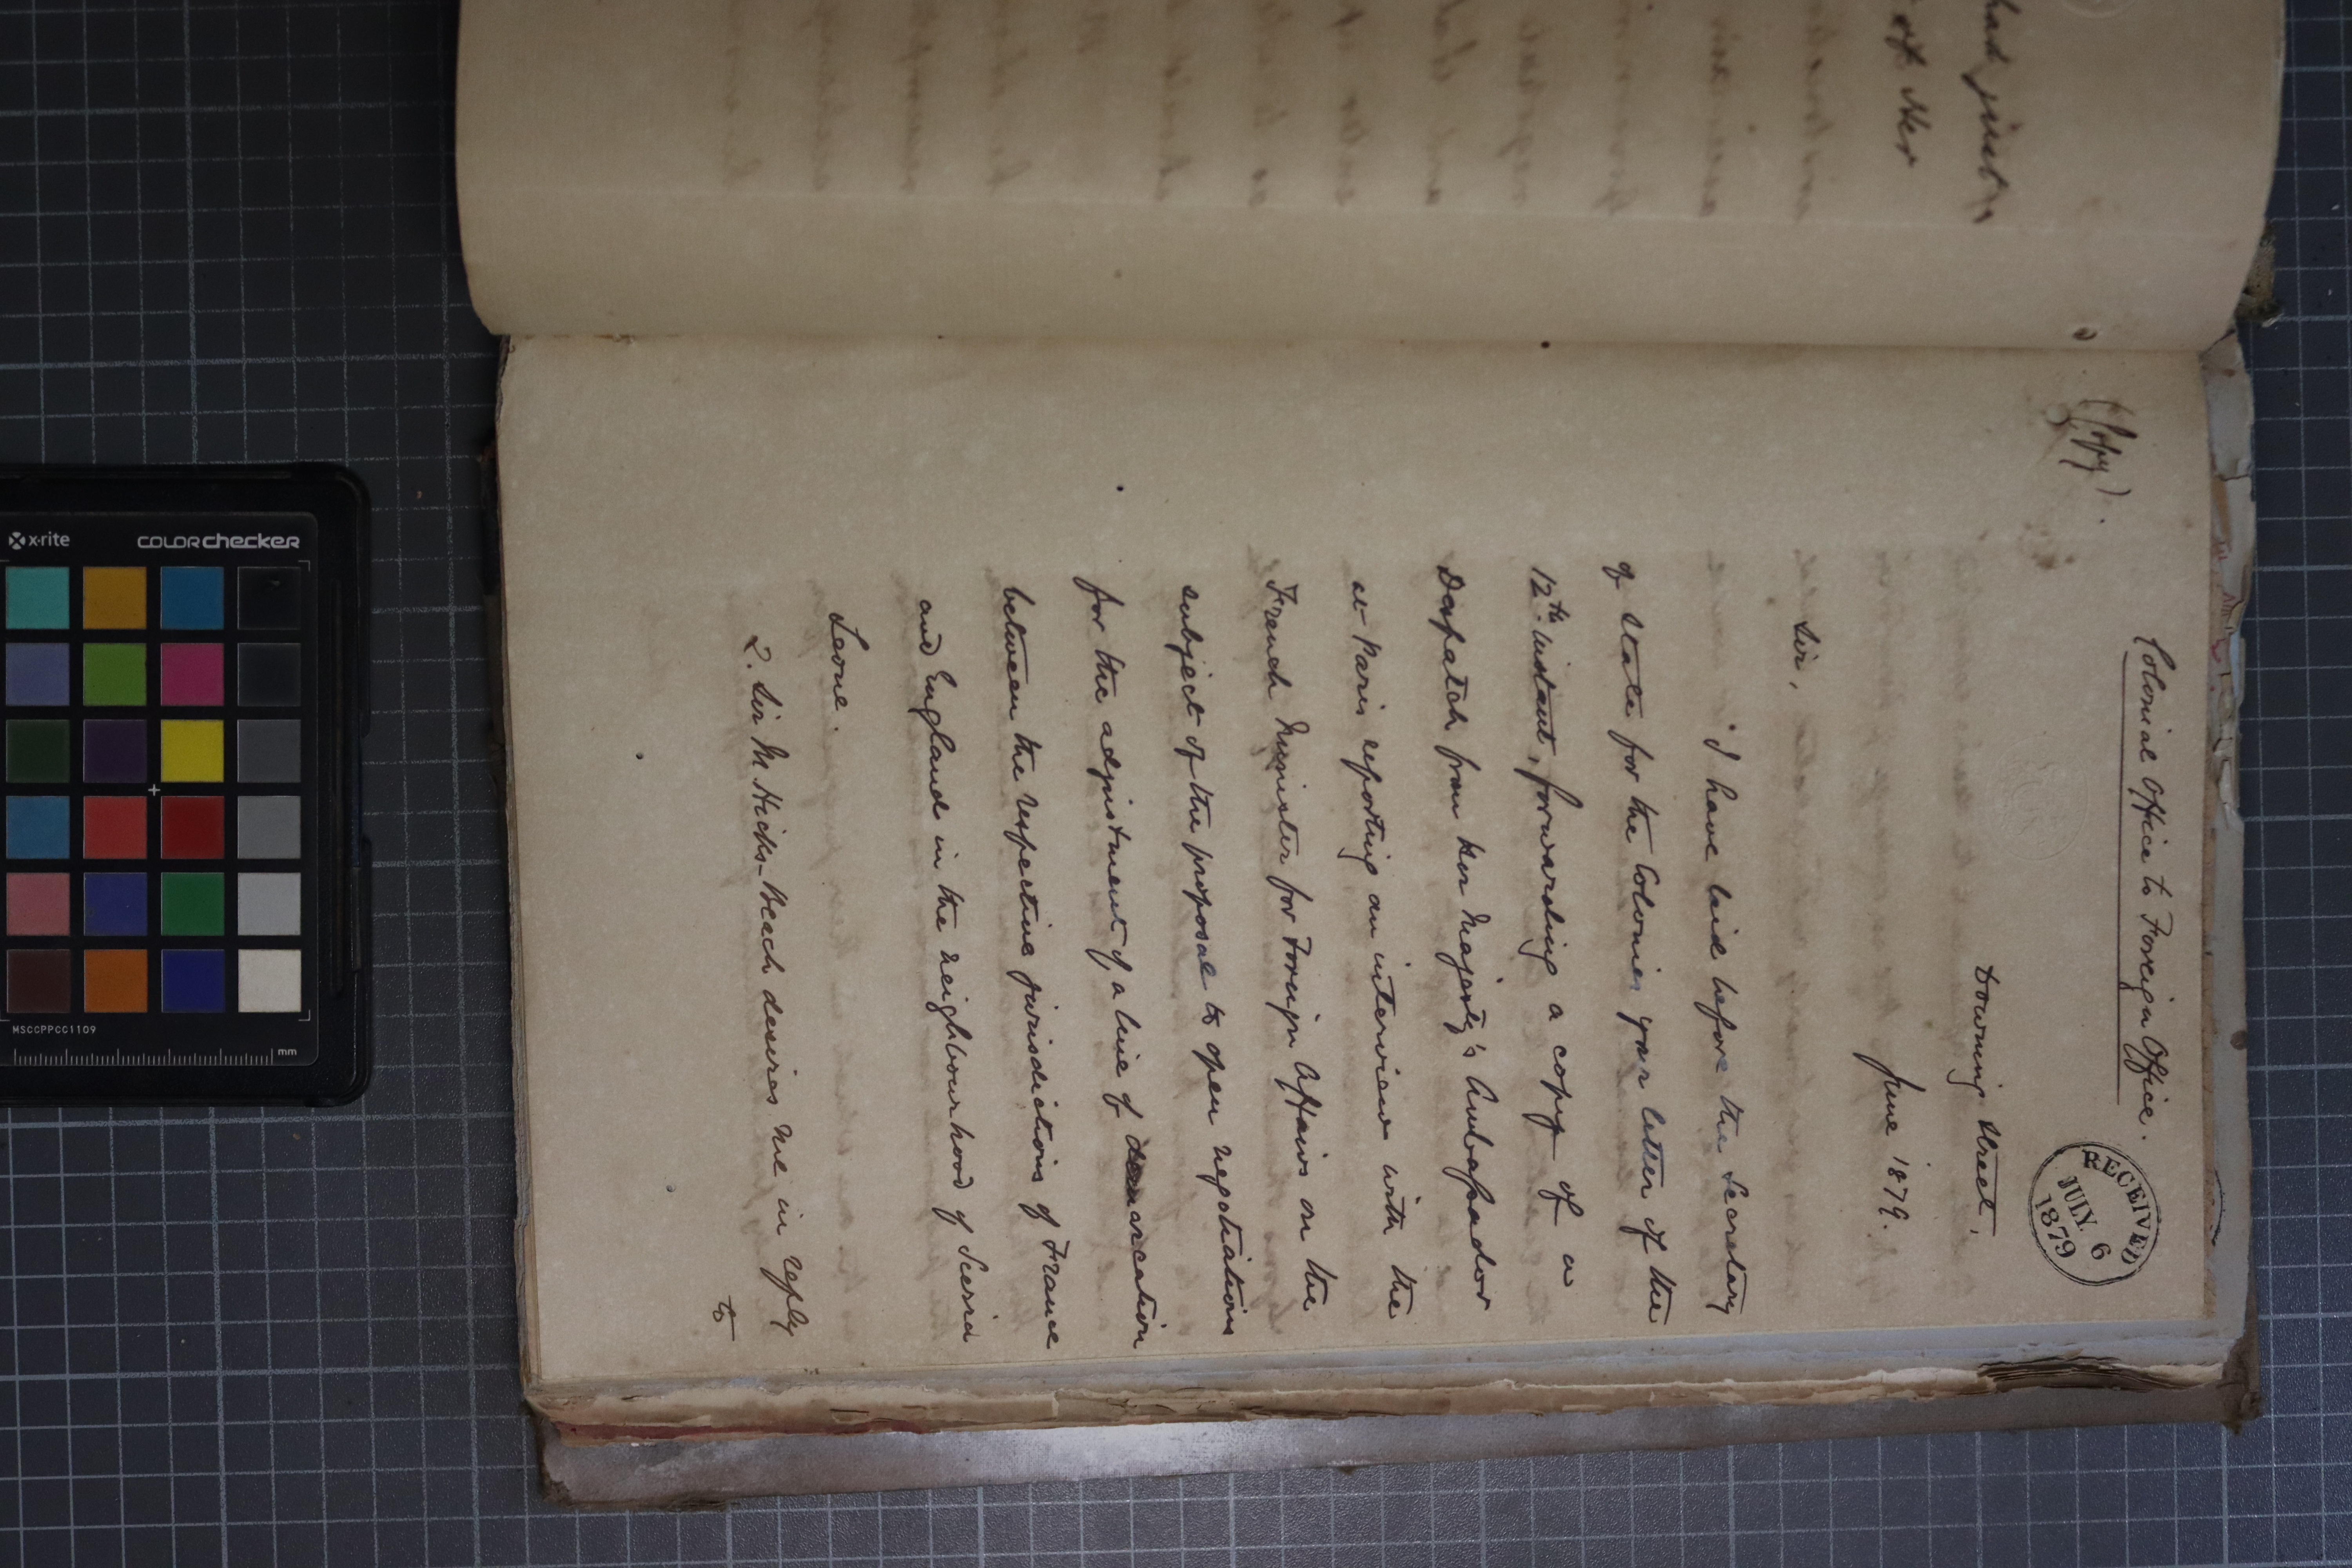 (Copy).
Colonial Office to Foreign Office.
RECEIVED
JULY. 6
1879
Downing Street,
June 1879.
Sir,
I have laid before the Secretary
of State for the Colonies your letter of the
12th. instant, forwarding a copy of a
Despatch from Her Majesty's Ambassador
at Paris reporting an interview with the
French Minister for Foreign Affairs on the
subject of the proposal to open negotiations
for the adjustment of a line of demarcation
between the respective jurisdictions of France
and England in the neighbourhood of Sierra
Leone.
2. Sir M. Hicks-Beach desires me in reply
to
of Her
x-rite
COLORchecker
MSCCPPCC1109
mm